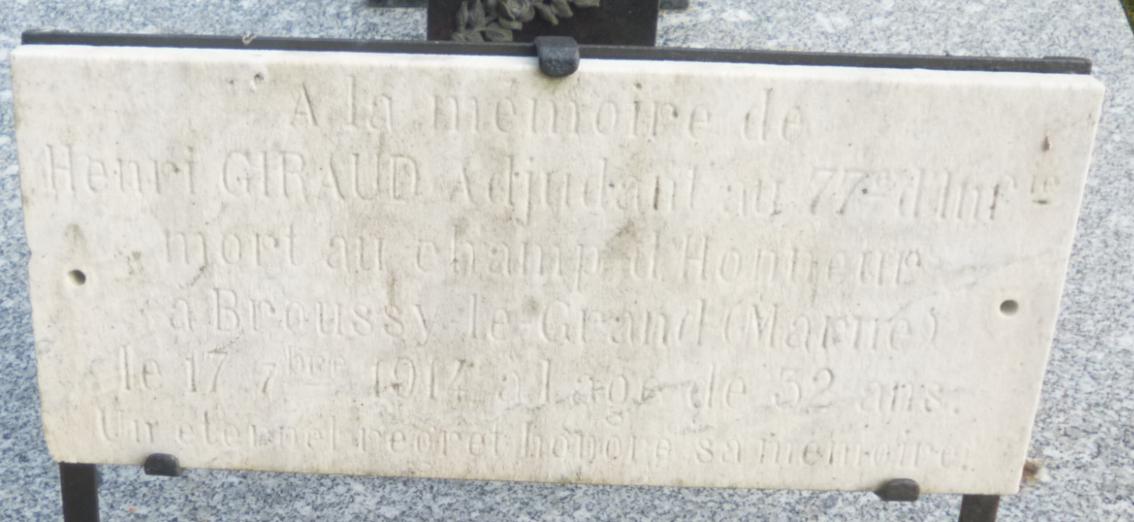 A la mémoire de
Henri GIRAUD Adjudant au 77e d'Infie
mort au champ d'Honneur
à Broussy le Grand (Marne)
le 17 7bre 1914 à l'age de 32 ans.
Un eternel regret honore sa memoire.